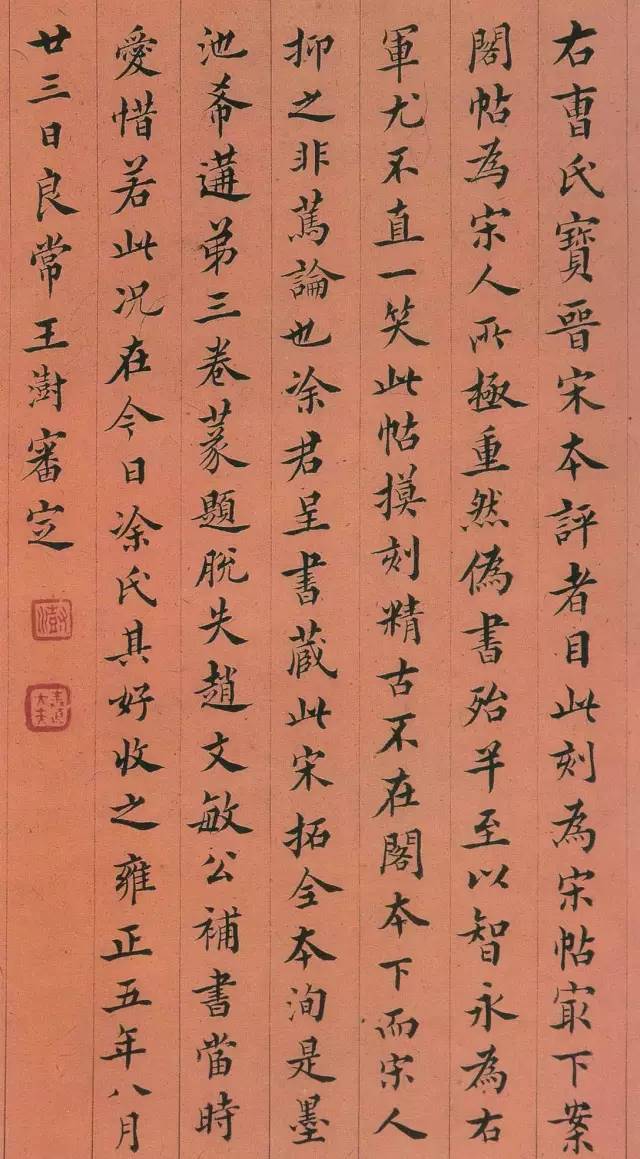 右曹氏寶晉宋本評者目此刻為宋帖㝡下案
閣帖為宋人所極重然偽書殆半至以智永為右
軍尤不直一笑此帖摸刻精古不在閣本下而宋人
抑之非篤論也凃君呈書蔵此宋拓全本洵是墨
池希遘弟三卷篆題脫失趙文敏公補書當時
愛惜若此况在今日凃氏其好收之雍正五年八月
廿三日良常王澍審定
澍